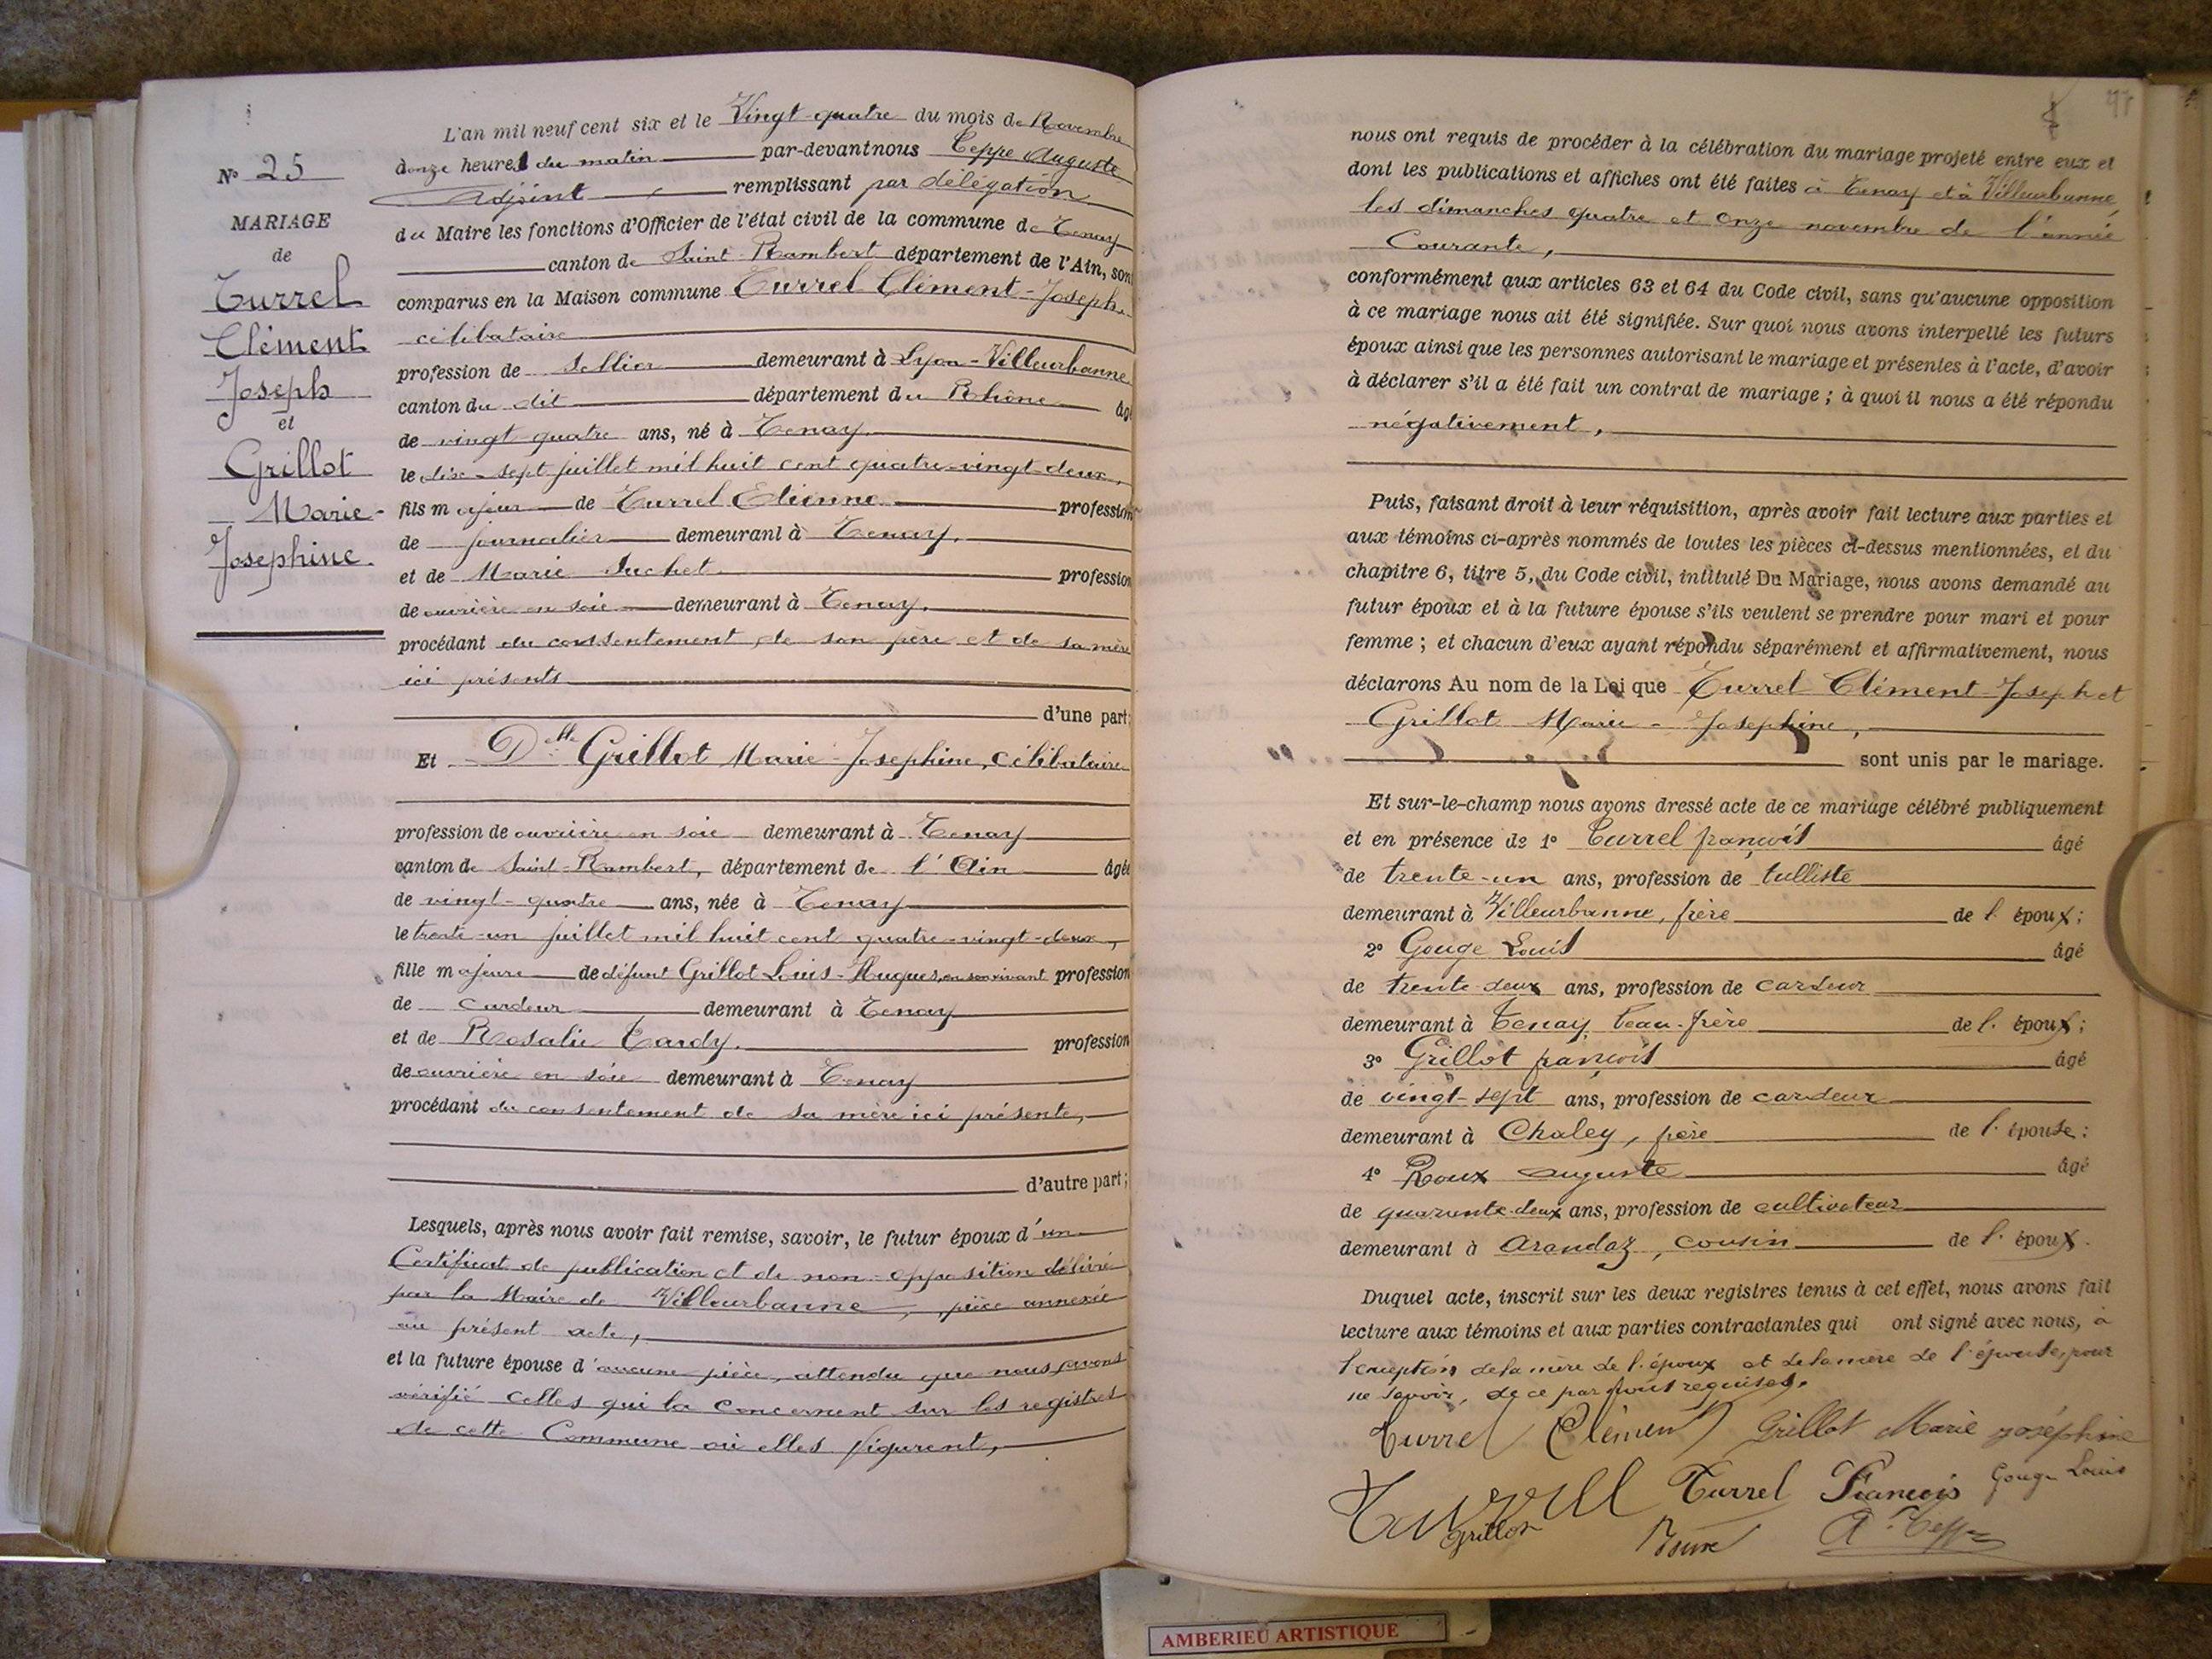 N° 25
MARIAGE
de
Turrel
Clément
Joseph
et
Grillot
Marie-
Josephine.
L'an mil neuf cent six et le Vingt-quatre du mois de Novembre
à onze heures du matin par-devant nous Teppe Auguste
Adjoint, remplissant par délégation
du Maire les fonctions d'Officier de l'état civil de la commune de Tenay
canton de Saint-Rambert département de l'Ain, sont
comparus en la Maison commune Turrel Clément-Joseph,
célibataire
profession de sellier demeurant à Lyon-Villeurbanne
canton du dit département du Rhône âgé
de vingt quatre ans, né à Tenay.
le dix-sept juillet mil huit cent quatre-vingt-deux,
fils majeur de Turrel Etienne profession
de journalier demeurant à Tenay.
et de Marie Suchet profession
de ouvrière en soie demeurant à Tenay.
procédant du consentement de son père et de sa mère
ici présents
d'une part;
Et Delle Grillot Marie-Josephine, célibataire
profession de ouvrière en soie demeurant à Tenay
canton de Saint-Rambert, département de l'Ain âgée
de vingt-quatre ans, née à Tenay
le trente-un juillet mil huit cent quatre-vingt-deux,
fille majeure de défunt Grillot Louis-Hugues, en son vivant profession
de cardeur demeurant à Tenay
et de Rosalie Tardy. profession
de ouvrière en soie demeurant à Tenay
procédant du consentement de sa mère ici présente,
d'autre part;
Lesquels, après nous avoir fait remise, savoir, le futur époux d'un
Certificat de publication et de non-opposition délivré
par la Maire de Villeurbanne, pièce annexée
au présent acte,
et la future épouse d'aucune pièce, attendu que nous avons
vérifié celles qui la concernent sur les registres
de cette Commune où elles figurent,
nous ont requis de procéder à la célébration du mariage projeté entre eux et
dont les publications et affiches ont été faites à Tenay et à Villeurbanne,
les dimanches quatre et onze novembre de l'année
Courante,
conformément aux articles 63 et 64 du Code civil, sans qu'aucune opposition
à ce mariage nous ait été signifiée. Sur quoi nous avons interpellé les futurs
époux ainsi que les personnes autorisant le mariage et présentes à l'acte, d'avoir
à déclarer s'il a été fait un contrat de mariage ; à quoi il nous a été répondu
négativement,
Puis, faisant droit à leur réquisition, après avoir fait lecture aux parties et
aux témoins ci-après nommés de toutes les pièces ci-dessus mentionnées, et du
chapitre 6, titre 5, du Code civil, intitulé Du Mariage, nous avons demandé au
futur époux et à la future épouse s'ils veulent se prendre pour mari et pour
femme ; et chacun d'eux ayant répondu séparément et affirmativement, nous
déclarons Au nom de la Loi que Turrel Clément-Joseph et
Grillot Marie-Josephine,
sont unis par le mariage.
Et sur-le-champ nous avons dressé acte de ce mariage célébré publiquement
et en présence de 1° Turrel françois âgé
de trente-un ans, profession de tulliste
demeurant à Villeurbanne, frère de l'époux;
2° Gouge Louis âgé
de trente-deux ans, profession de cardeur
demeurant à Tenay, beau-frère de l'époux;
3° Grillot françois âgé
de vingt-sept ans, profession de cardeur
demeurant à Chaley, frère de l'épouse;
4° Roux auguste âgé
de quarante-deux ans, profession de cultivateur
demeurant à Arandaz, cousin de l'époux.
Duquel acte, inscrit sur les deux registres tenus à cet effet, nous avons fait
lecture aux témoins et aux parties contractantes qui ont signé avec nous, à
l'exception de la mère de l'époux et de la mère de l'épouse, pour
ne savoir, de ce par nous requises.
Turrel Clément Grillot Marie joséphine
Turrel Turrel François Gouge Louis
Grillot A. Teppe
AMBERIEU ARTISTIQUE